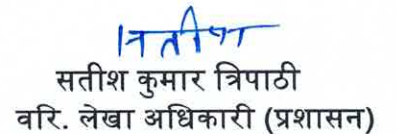 सतीश कुमार त्रिपाठी
वरि. लेखा अधिकारी (प्रशासन)